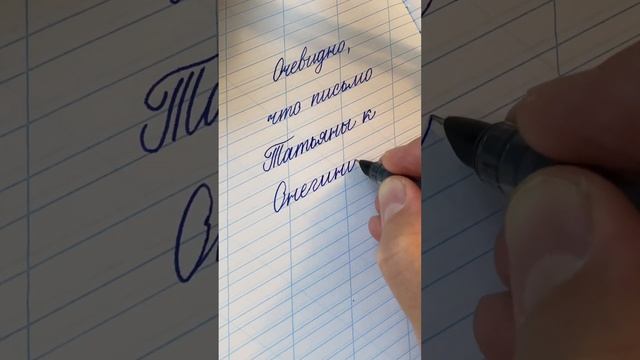 Очевидно,
что письмо
Татьяны к
Онегини